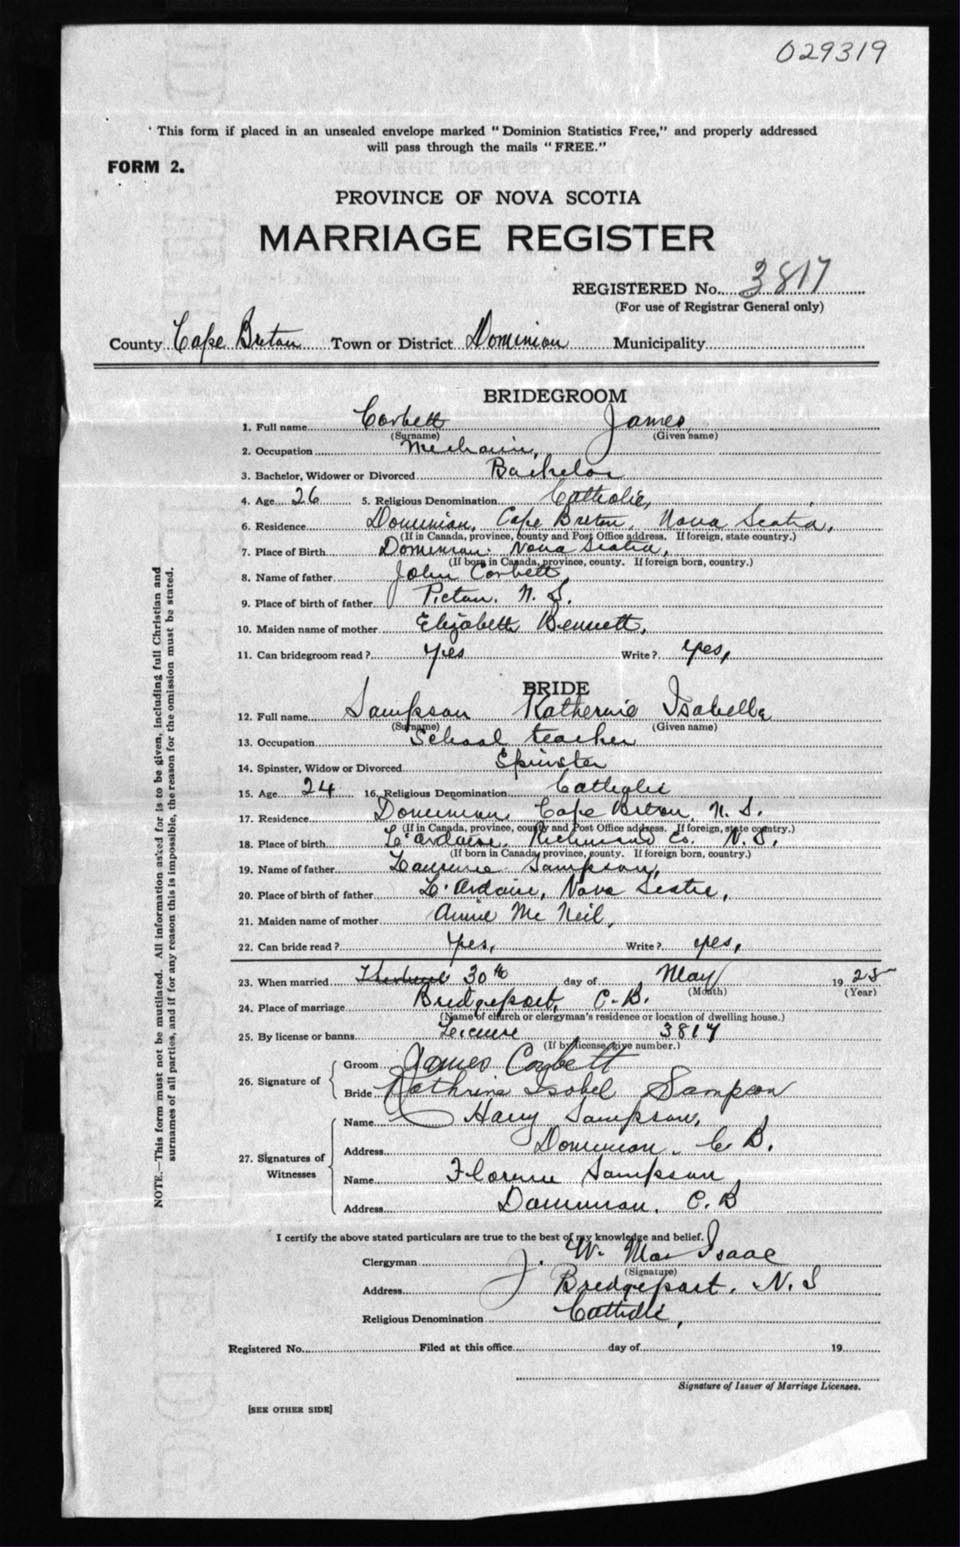 029319
This form if placed in an unsealed envelope marked "Dominion Statistics Free," and properly addressed
will pass through the mails "FREE."
FORM 2.
PROVINCE OF NOVA SCOTIA
MARRIAGE REGISTER
REGISTERED No. 3817
(For use of Registrar General only)
County Cape Breton Town or District Dominion Municipality
BRIDEGROOM
1. Full name Corbett James
(Surname) (Given name)
2. Occupation Mechanic,
3. Bachelor, Widower or Divorced Bachelor
4. Age 26 5. Religious Denomination Catholic,
6. Residence Dominion, Cape Breton, Nova Scotia,
(If in Canada, province, county and Post Office address. If foreign, state country.)
7. Place of Birth Dominion. Nova Scotia,
(If born in Canada, province, county. If foreign born, country.)
8. Name of father John Corbett
9. Place of birth of father Pictou. N. S.
10. Maiden name of mother Elizabeth Bennett,
11. Can bridegroom read? yes Write? yes,
BRIDE
12. Full name Sampson Katherine Isabella
(Surname) (Given name)
13. Occupation School teacher
14. Spinster, Widow or Divorced Spinster
15. Age 24 16. Religious Denomination Catholic
17. Residence Dominion, Cape Breton, N. S.
(If in Canada, province, county and Post Office address. If foreign, state country.)
18. Place of birth L'Ardoise, Richmond Co. N. S.
(If born in Canada, province, county. If foreign born, country.)
19. Name of father Laurence Sampson,
20. Place of birth of father L'Ardoise, Nova Scotia,
21. Maiden name of mother Annie McNeil,
22. Can bride read? Yes, Write? yes,
23. When married 30th day of May 1925
(Month) (Year)
24. Place of marriage Bridgeport, C.B.
(Name of church or clergyman's residence or location of dwelling house.)
25. By license or banns License 3817
(If by license, give number.)
26. Signature of Groom James Corbett
Bride Kathrine Isobel Sampson
27. Signatures of Witnesses
Name Harry Sampson,
Address Dominion. C B.
Name Florence Sampson
Address Dominion. C.B
I certify the above stated particulars are true to the best of my knowledge and belief.
Clergyman J. W. MacIsaac
(Signature)
Address Bridgeport. N.S
Religious Denomination Catholic,
Registered No. Filed at this office day of 19
Signature of Issuer of Marriage Licenses.
[SEE OTHER SIDE]
NOTE.—This form must not be mutilated. All information asked for is to be given, including full Christian and
surnames of all parties, and if for any reason this is impossible, the reason for the omission must be stated.